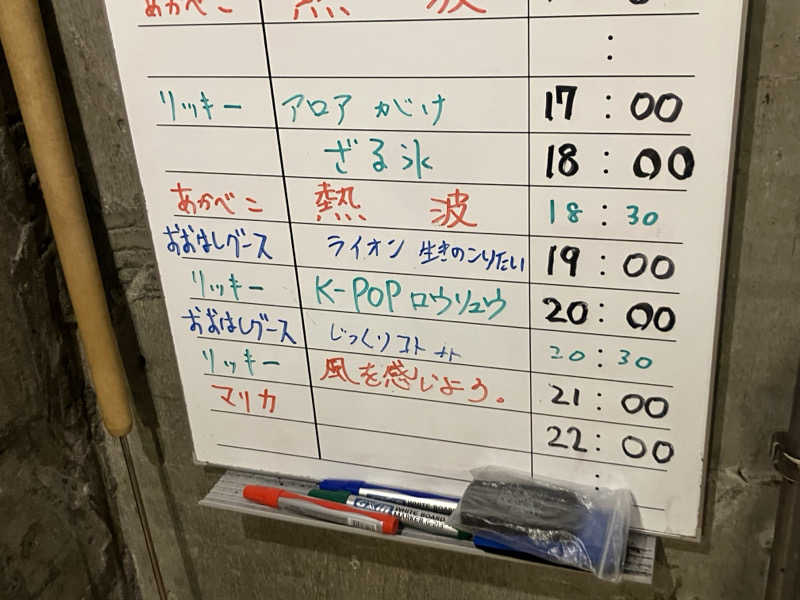 あかべこ 熱 波
:
リッキー アロア かじけ 17:00
ざる氷 18:00
あかべこ 熱 波 18:30
おおはしグース ライオン 生きのこりたい 19:00
リッキー K-POPロウリュウ 20:00
おおはしグース じっくりコト 20:30
リッキー 風を感じよう。 21:00
マリカ 22:00
:
WHITE BOARD
WHITE BOARD MARKER